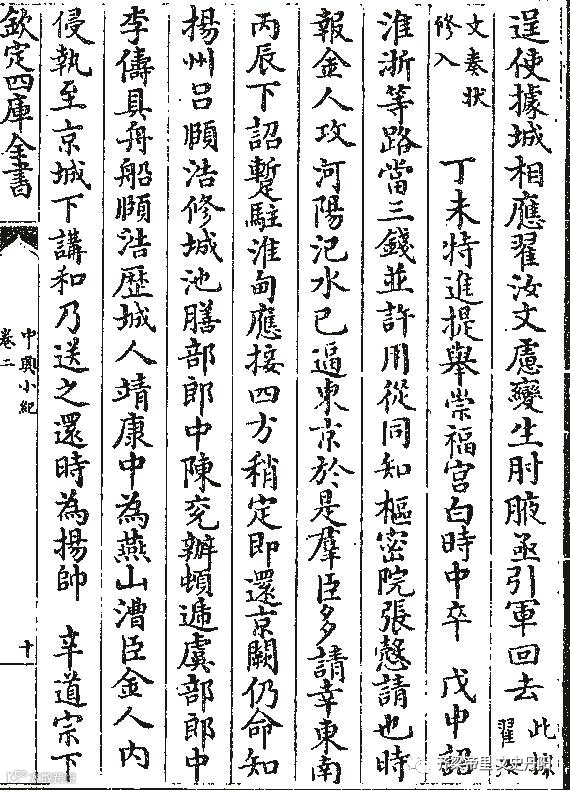 逞使據城相應翟汝文慮變生肘腋亟引軍回去此據翟汝
文奏狀修入 丁未特進提舉崇福宫白時中卒 戊申詔
淮浙等路當三錢並許用從同知樞密院張慤請也時
報金人攻河陽汜水已逼東京於是羣臣多請幸東南
丙辰下詔暫駐淮甸應接四方稍定即還京闕仍命知
揚州吕頤浩修城池膳部郎中陳兖辦頓遞虞部郎中
李儔具舟船頤浩歴城人靖康中為燕山漕臣金人内
侵執至京城下講和乃送之還時為揚帥 辛道宗下
欽定四庫全書
中興小紀
卷二
十
开梁帝里文史丹阳